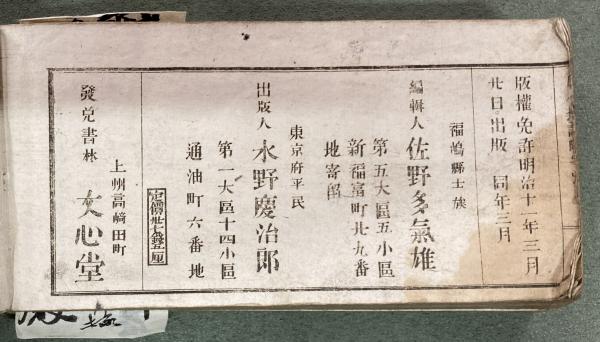 版權免許明治十一年三月
廿日出版　同年三月
福嶋縣士族
編輯人 佐野多氣雄
第五大區五小區
新福富町廿九番
地寄留
東京府平民
出版人 水野慶治郎
第一大區十四小區
通油町六番地
定價卅七錢五厘
上州高崎田町
發兌書林 文心堂